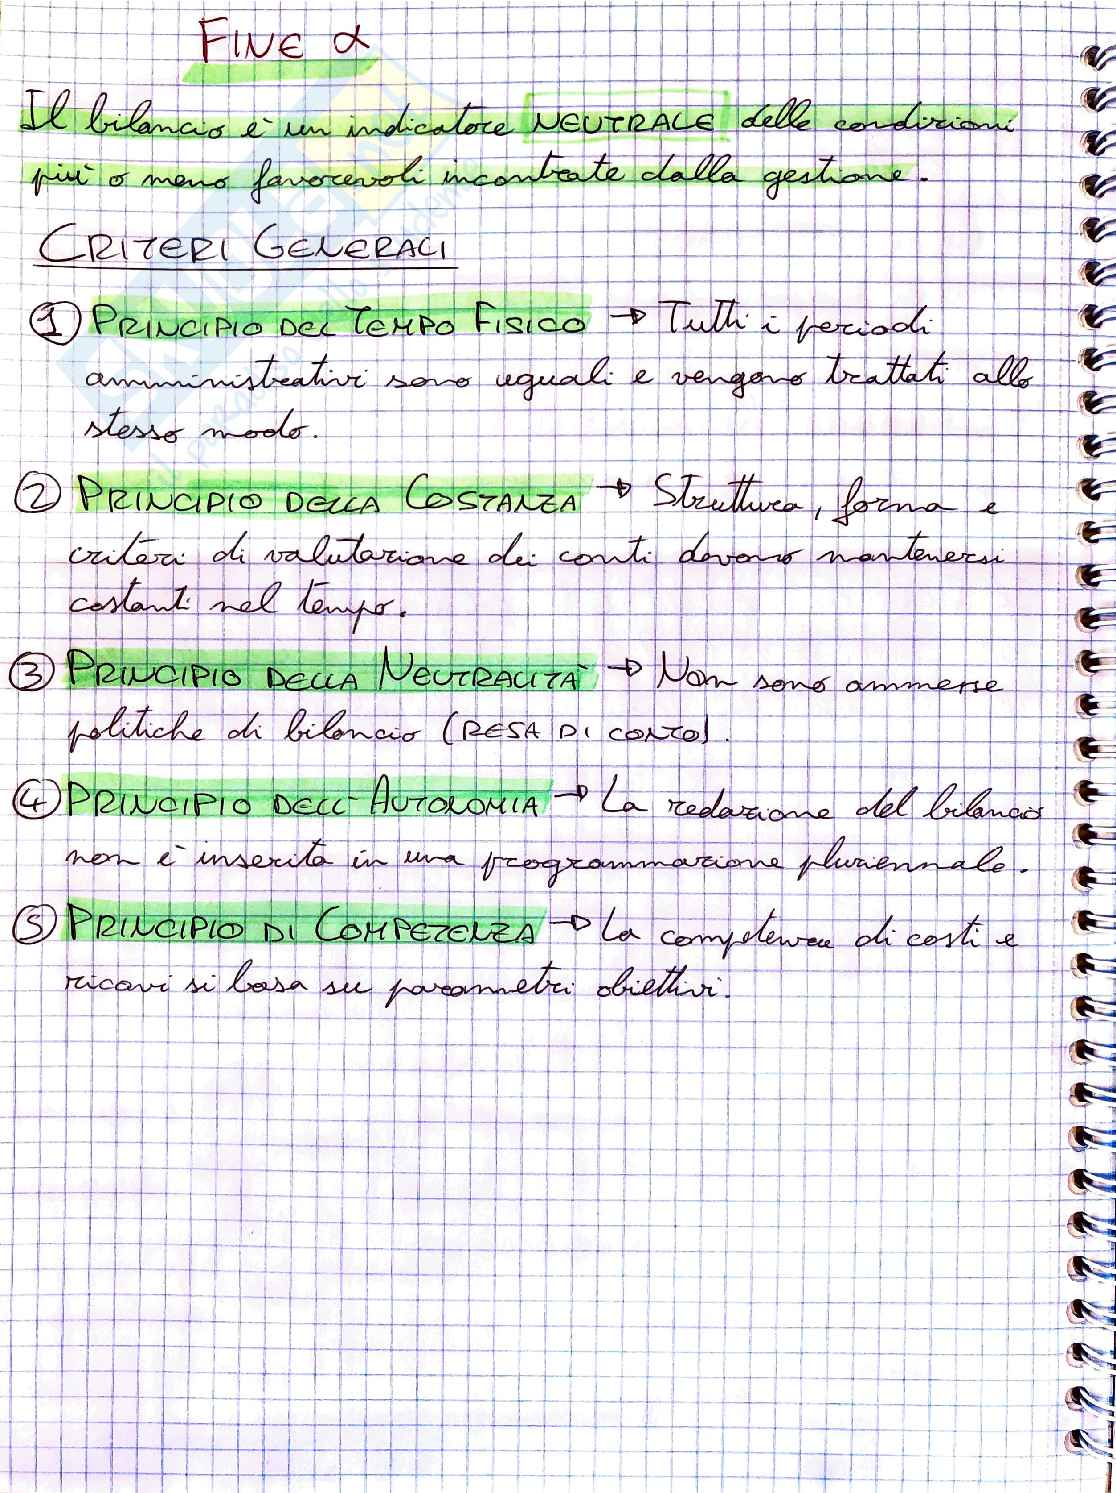 FINE α
Il bilancio è un indicatore NEUTRALE delle condizioni
più o meno favorevoli incontrate dalla gestione.
CRITERI GENERALI
① PRINCIPIO DEL TEMPO FISICO → Tutti i periodi
amministrativi sono uguali e vengono trattati allo
stesso modo.
② PRINCIPIO DELLA COSTANZA → Struttura, forma e
criteri di valutazione dei conti devono mantenersi
costanti nel tempo.
③ PRINCIPIO DELLA NEUTRALITÀ → Non sono ammesse
politiche di bilancio (RESA DI CONTO).
④ PRINCIPIO DELL'AUTONOMIA → La redazione del bilancio
non è inserita in una programmazione pluriennale.
⑤ PRINCIPIO DI COMPETENZA → La competenza di costi e
ricavi si basa su parametri obiettivi.